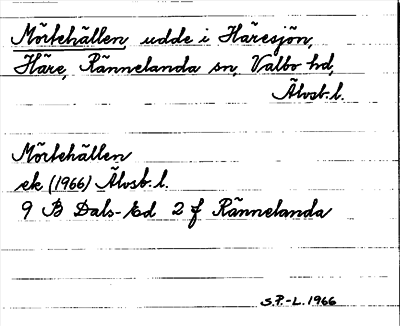 Mörtehällen udde i Häresjön,
Häre, Rännelanda sn, Valbo hd,
Älvsb. l.
Mörtehällen
ek (1966) Älvsb. l.
9 B Dals-Ed 2 f Rännelanda
S.P.-L. 1966